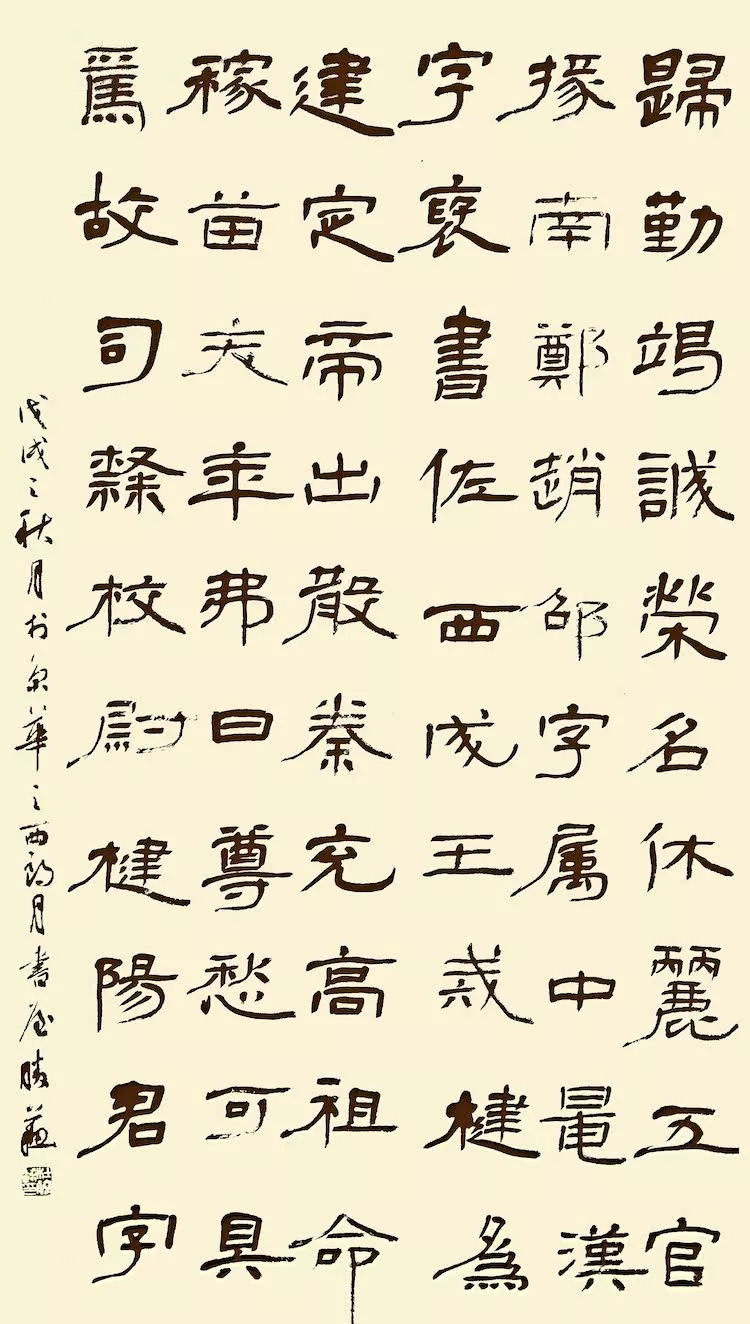 歸勤竭誠榮名休麗五官
掾南鄭趙邵字季中量漢
字褒書佐西成王戒楗為
建定帝出散秦充高祖命
稼苗夭年弗曰尊愁可具
篤故司隸校尉楗陽君字
戊戌之秋月於京華之西朗月書屋勝